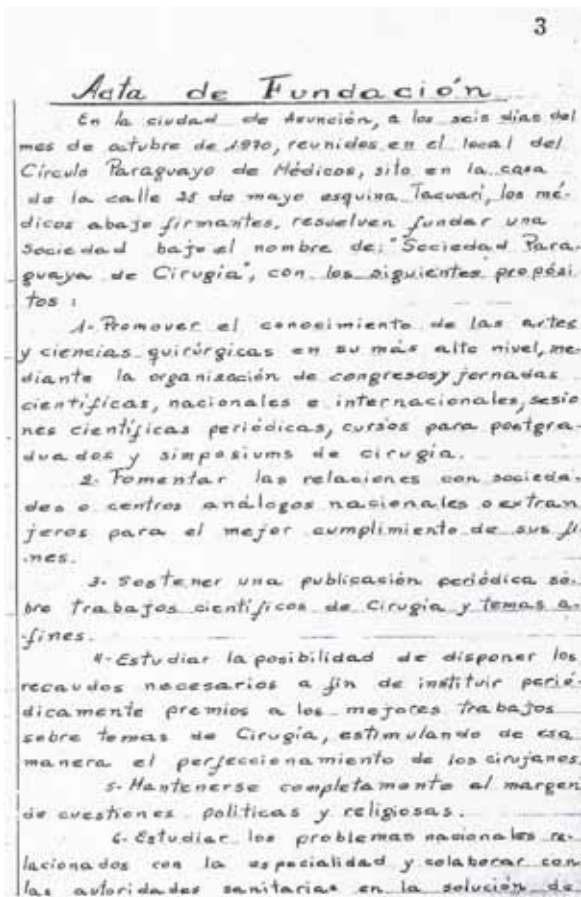 3
Acta de Fundación
En la ciudad de Asunción, a los seis días del
mes de octubre de 1970, reunidos en el local del
Círculo Paraguayo de Médicos, sito en la casa
de la calle 25 de mayo esquina Tacuarí, los mé-
dicos abajo firmantes, resuelven fundar una
Sociedad bajo el nombre de: "Sociedad Para-
guaya de Cirugía", con los siguientes propósi-
tos:
1- Promover el conocimiento de las artes
y ciencias quirúrgicas en su más alto nivel, me-
diante la organización de congresos y jornadas
científicas, nacionales e internacionales, sesio
nes científicas periódicas, cursos para postgra-
duados y simposiums de cirugía.
2- Fomentar las relaciones con socieda-
des o centros análogos nacionales o extran
jeros para el mejor cumplimiento de sus fi-
nes.
3- Sostener una publicación periódica so-
bre trabajos científicos de Cirugía y temas a-
fines.
4- Estudiar la posibilidad de disponer los
recaudos necesarios a fin de instituir perió-
dicamente premios a los mejores trabajos
sobre temas de Cirugía, estimulando de esa
manera el perfeccionamiento de los cirujanos.
5- Mantenerse completamente al margen
de cuestiones políticas y religiosas.
6- Estudiar los problemas nacionales re-
lacionados con la especialidad y colaborar con
las autoridades sanitarias en la solución de